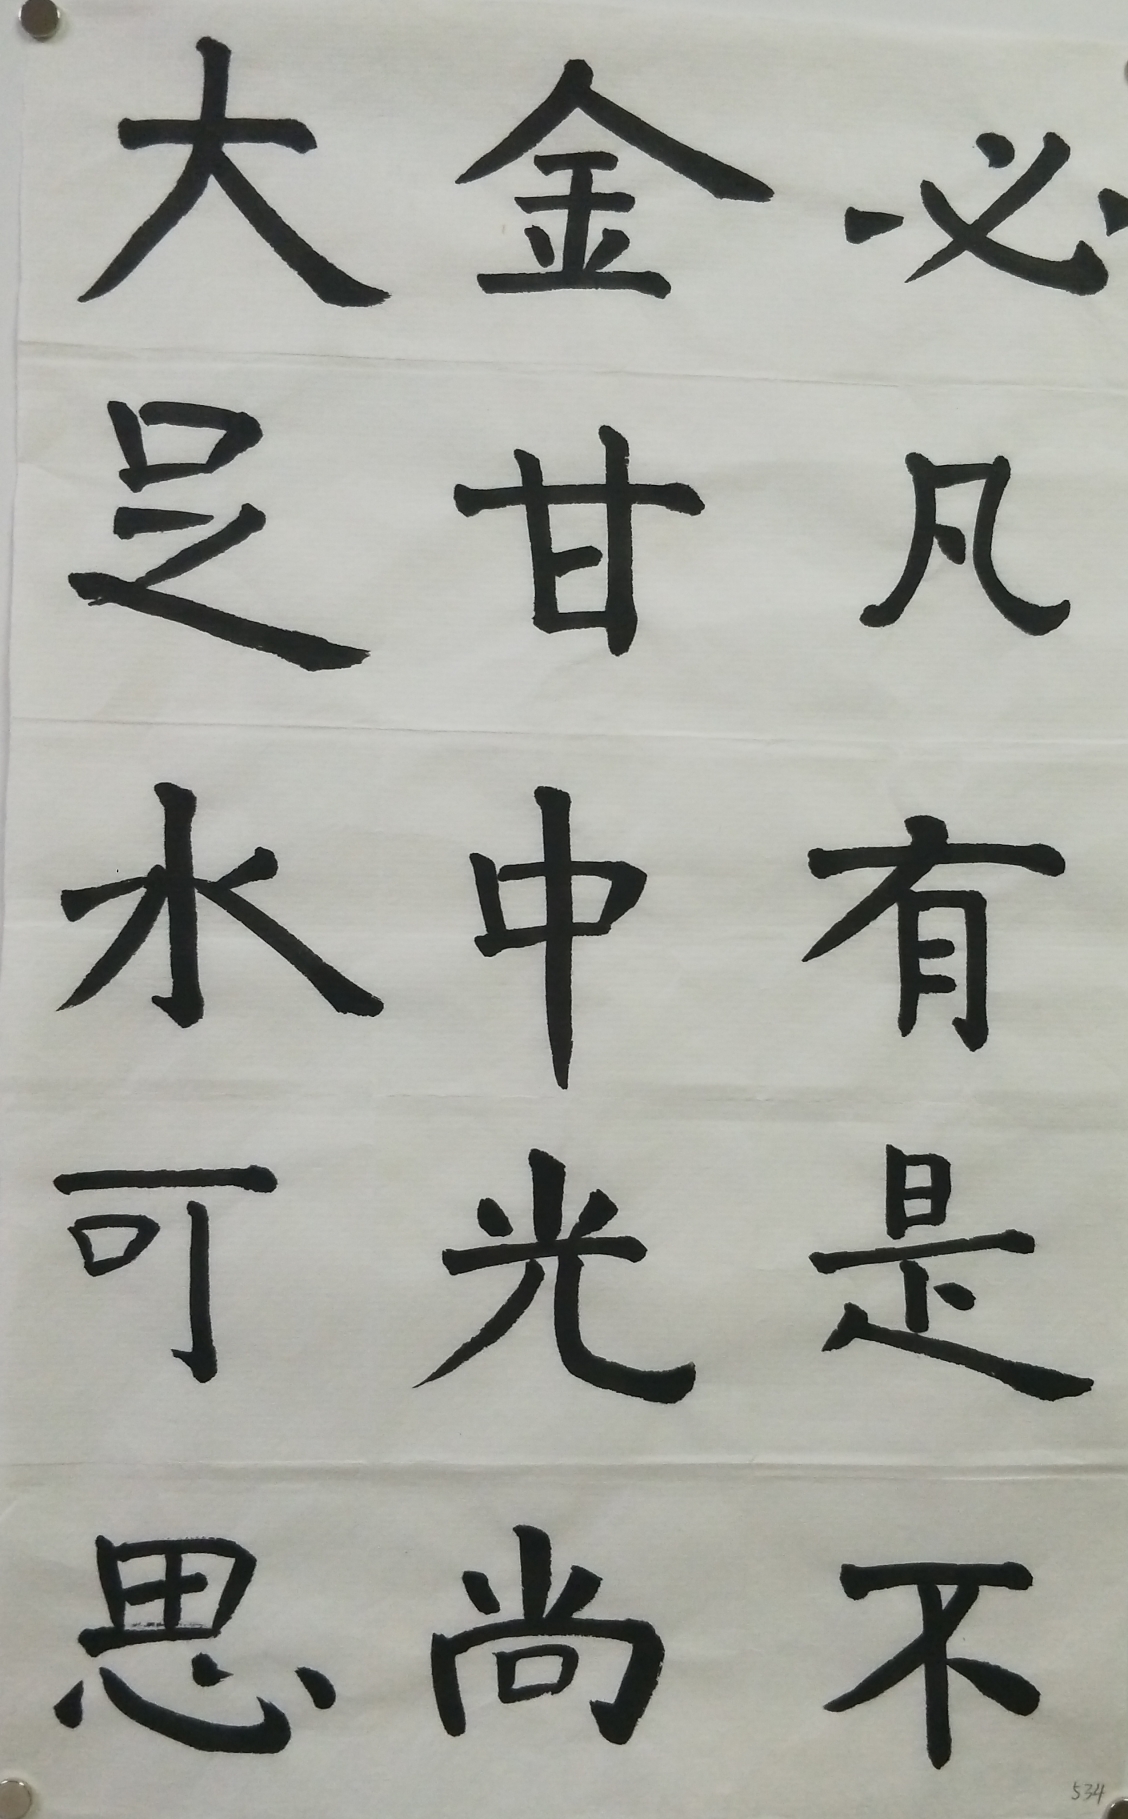 必凡有是不
金甘中光尚
大足水可思
534